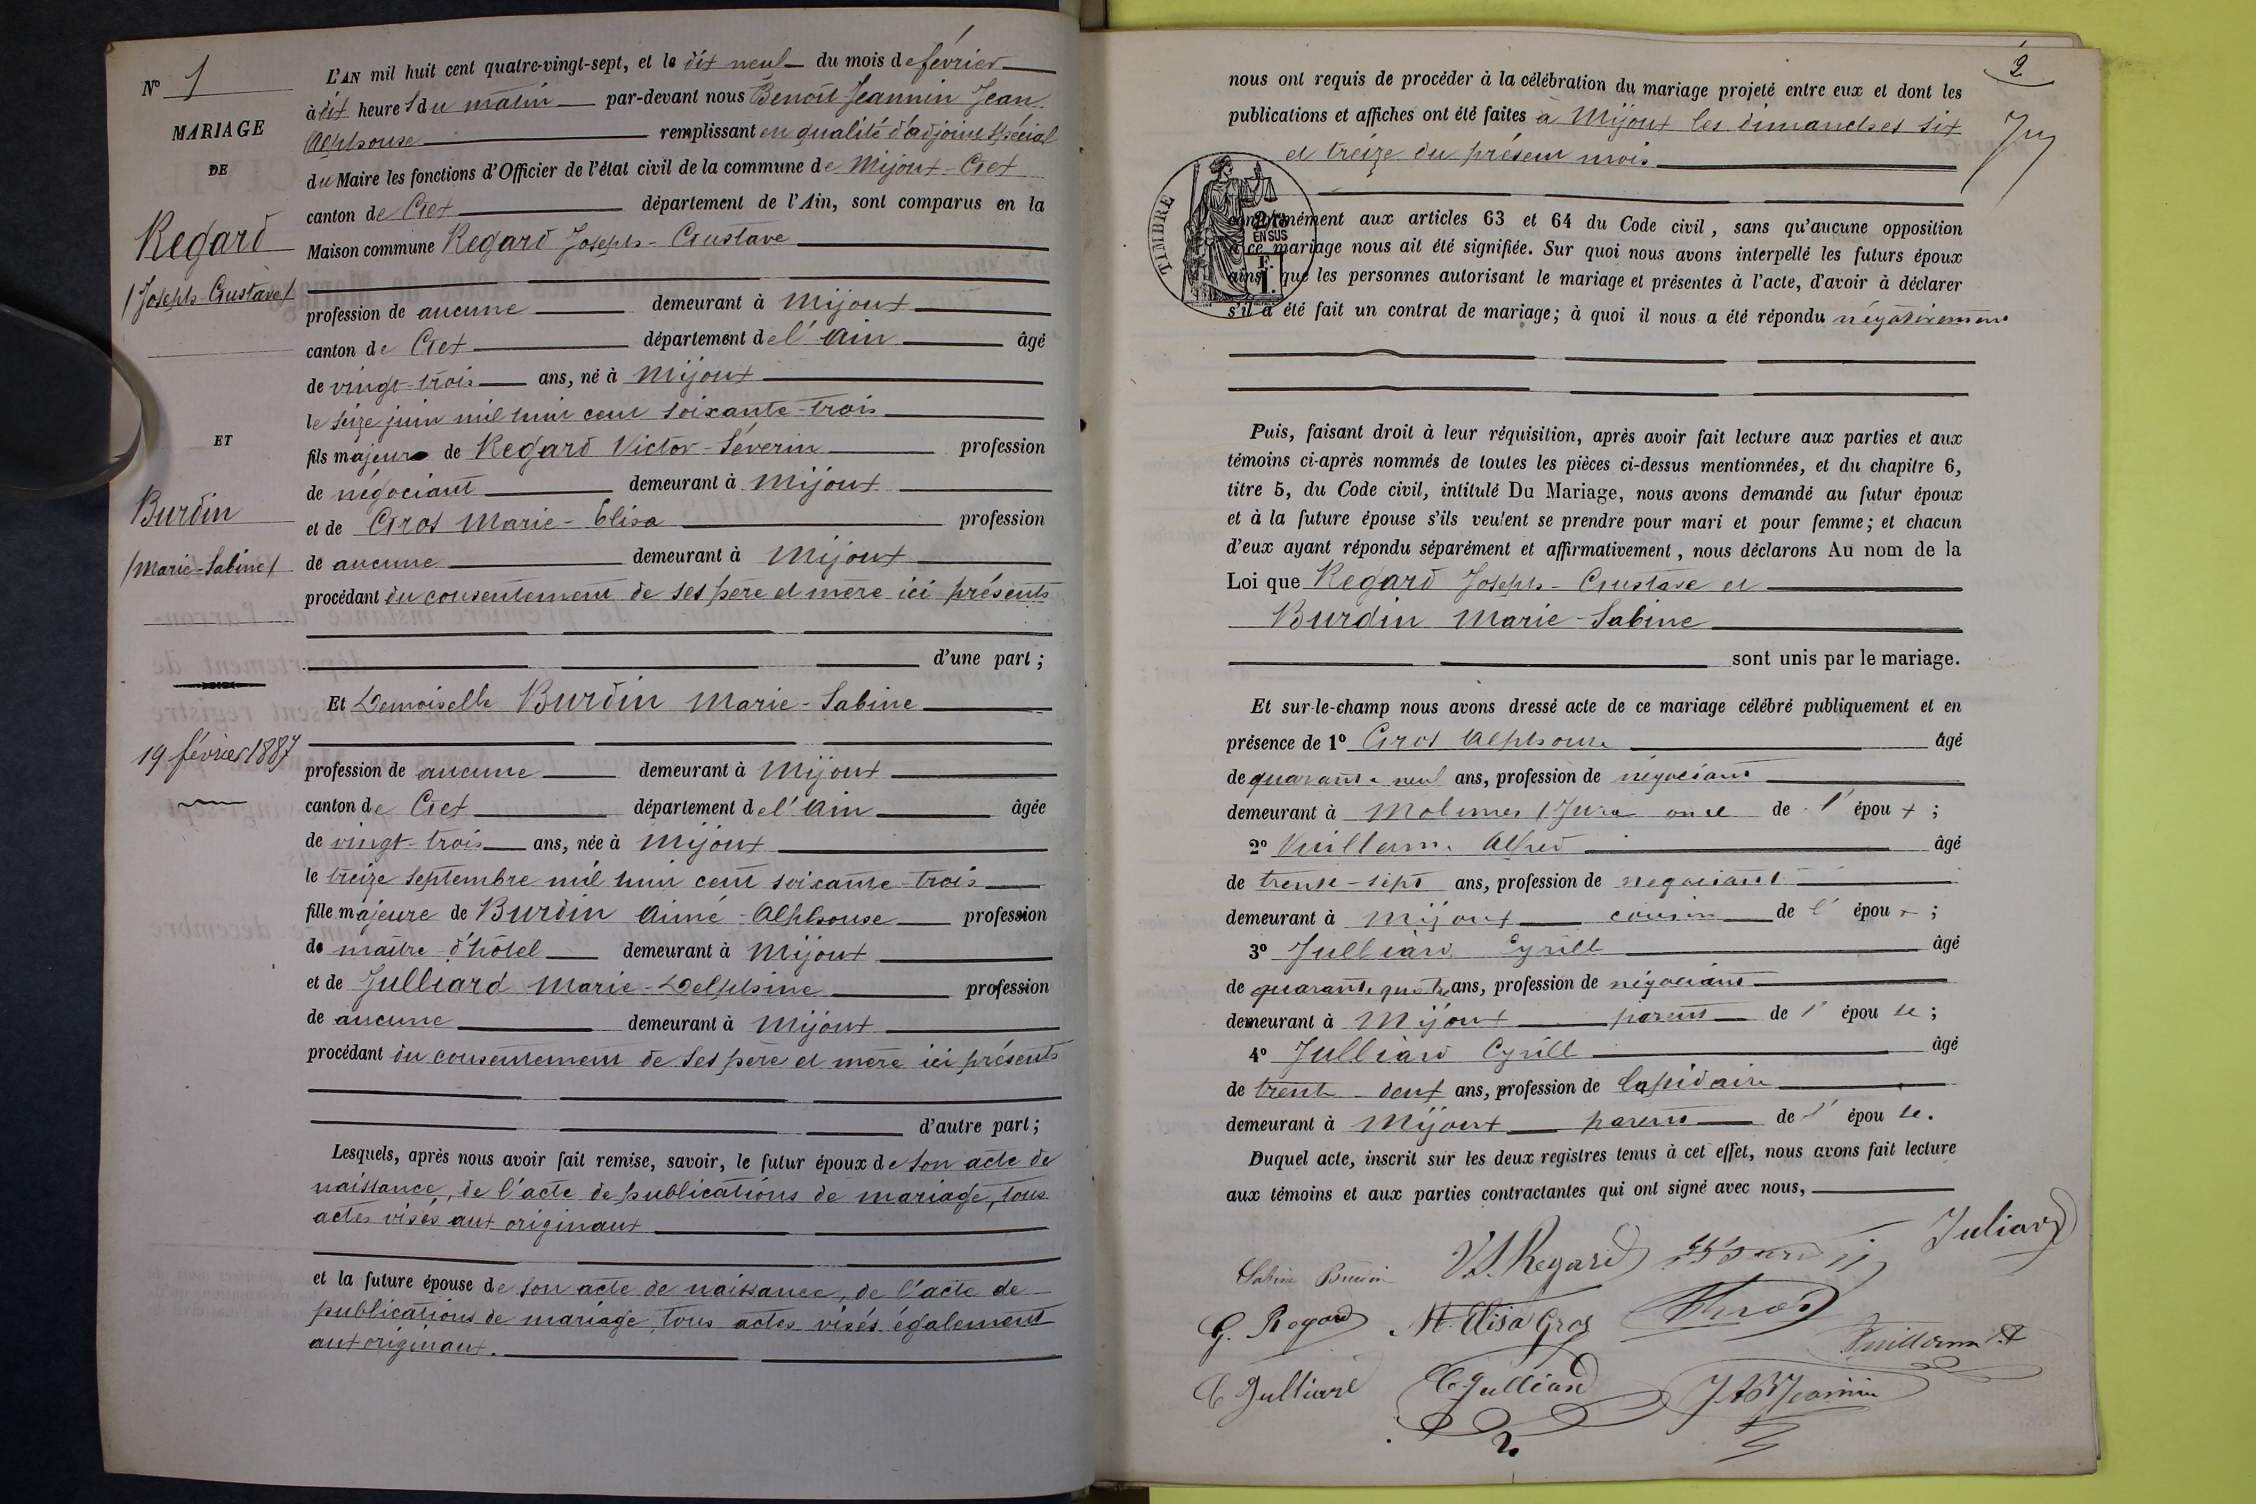 N° 1
MARIAGE
DE
Regard
(Joseph-Gustave)
ET
Burdin
(Marie-Sabine)
19 février 1887
L'AN mil huit cent quatre-vingt-sept, et le dix neuf du mois de février
à dix heures du matin par-devant nous Benoit Jeannin Jean
Alphonse remplissant en qualité d'adjoint spécial
du Maire les fonctions d'Officier de l'état civil de la commune de Mijoux-Gex
canton de Gex département de l'Ain, sont comparus en la
Maison commune Regard Joseph-Gustave
profession de aucune demeurant à Mijoux
canton de Gex département de l'Ain âgé
de vingt-trois ans, né à Mijoux
le seize juin mil huit cent soixante-trois
fils majeur de Regard Victor-Séverin profession
de négociant demeurant à Mijoux
et de Gros Marie-Elisa profession
de aucune demeurant à Mijoux
procédant du consentement de ses père et mère ici présents
d'une part;
Et Demoiselle Burdin Marie-Sabine
profession de aucune demeurant à Mijoux
canton de Gex département de l'Ain âgée
de vingt-trois ans, née à Mijoux
le treize septembre mil huit cent soixante-trois
fille majeure de Burdin Aimé-Alphonse profession
de maître d'hôtel demeurant à Mijoux
et de Julliard Marie-Delphine profession
de aucune demeurant à Mijoux
procédant du consentement de ses père et mère ici présents
d'autre part;
Lesquels, après nous avoir fait remise, savoir, le futur époux de son acte de
naissance, de l'acte de publications de mariage, tous
actes visés aux originaux
et la future épouse de son acte de naissance, de l'acte de
publications de mariage, tous actes visés également
aux originaux.
2
nous ont requis de procéder à la célébration du mariage projeté entre eux et dont les
publications et affiches ont été faites à Mijoux les dimanches six
et treize du présent mois
TIMBRE
2/10
EN SUS
F.
1.
conformément aux articles 63 et 64 du Code civil, sans qu'aucune opposition
à ce mariage nous ait été signifiée. Sur quoi nous avons interpellé les futurs époux
ainsi que les personnes autorisant le mariage et présentes à l'acte, d'avoir à déclarer
s'il a été fait un contrat de mariage; à quoi il nous a été répondu négativement
Puis, faisant droit à leur réquisition, après avoir fait lecture aux parties et aux
témoins ci-après nommés de toutes les pièces ci-dessus mentionnées, et du chapitre 6,
titre 5, du Code civil, intitulé Du Mariage, nous avons demandé au futur époux
et à la future épouse s'ils veulent se prendre pour mari et pour femme; et chacun
d'eux ayant répondu séparément et affirmativement, nous déclarons Au nom de la
Loi que Regard Joseph-Gustave et
Burdin Marie-Sabine
sont unis par le mariage.
Et sur-le-champ nous avons dressé acte de ce mariage célébré publiquement et en
présence de 1° Gros Alphonse âgé
de quarante neuf ans, profession de négociant
demeurant à Molunes (Jura oncle de l'époux;
2° Vuillerm. Alfred âgé
de trente-sept ans, profession de négociant
demeurant à Mijoux cousin de l'époux;
3° Julliard Cyrill âgé
de quarante quatre ans, profession de négociant
demeurant à Mijoux parent de l'épouse;
4° Julliard Cyrill âgé
de trente deux ans, profession de lapidaire
demeurant à Mijoux parent de l'épouse.
Duquel acte, inscrit sur les deux registres tenus à cet effet, nous avons fait lecture
aux témoins et aux parties contractantes qui ont signé avec nous,
Sabine Burdin V.S. Regard Juliard
G. Regard M. Elisa Gros Gros Vuillerm A
C Julliard C Julliard J A B Jeannin